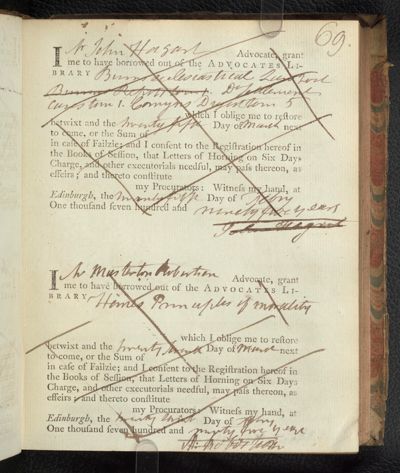 69.
I Mr John Hagart Advocate, grant
me to have borrowed out of the ADVOCATES LI-
BRARY Burns Eclesiastical Law
Customs 1. Comyns Digest tom 5
which I oblige me to restore
betwixt and the twenty fifth Day of March next
to come, or the Sum of
in case of Failzie; and I consent to the Registration hereof in
the Books of Session, that Letters of Horning on Six Days
Charge, and other executorials needful, may pass thereon, as
effeirs; and thereto constitute
my Procurators: Witness my hand, at
Edinburgh, the twenty fifth Day of Febry
One thousand seven hundred and ninety five years
John Hagart
I Mr Masterton Robertson Advocate, grant
me to have borrowed out of the ADVOCATES LI-
BRARY Homes Principles of morality
which I oblige me to restore
betwixt and the twenty Day of March next
to come, or the Sum of
in case of Failzie; and I consent to the Registration hereof in
the Books of Session, that Letters of Horning on Six Days
Charge, and other executorials needful, may pass thereon, as
effeirs and thereto constitute
my Procurators: Witness my hand, at
Edinburgh, the twenty Day of Febry
One thousand seven hundred and ninety five years
M. Robertson